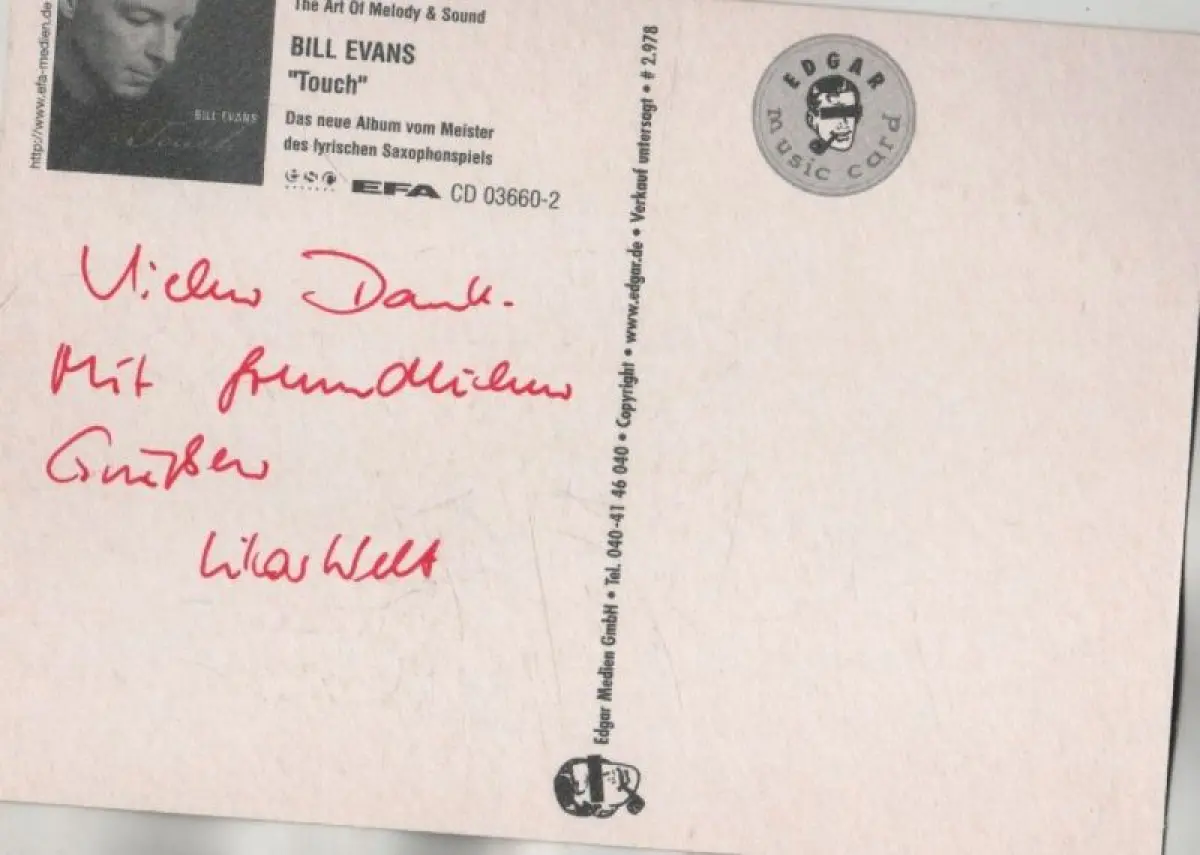 The Art Of Melody & Sound
BILL EVANS
"Touch"
Das neue Album vom Meister
des lyrischen Saxophonspiels
EFA CD 03660-2
http://www.efa-medien.de
BILL EVANS
Touch
Vielen Dank.
Mit freundlichen
Grüßen
Welt
Edgar Medien GmbH • Tel. 040-41 46 040 • Copyright • www.edgar.de • Verkauf untersagt • # 2.978
EDGAR
music card